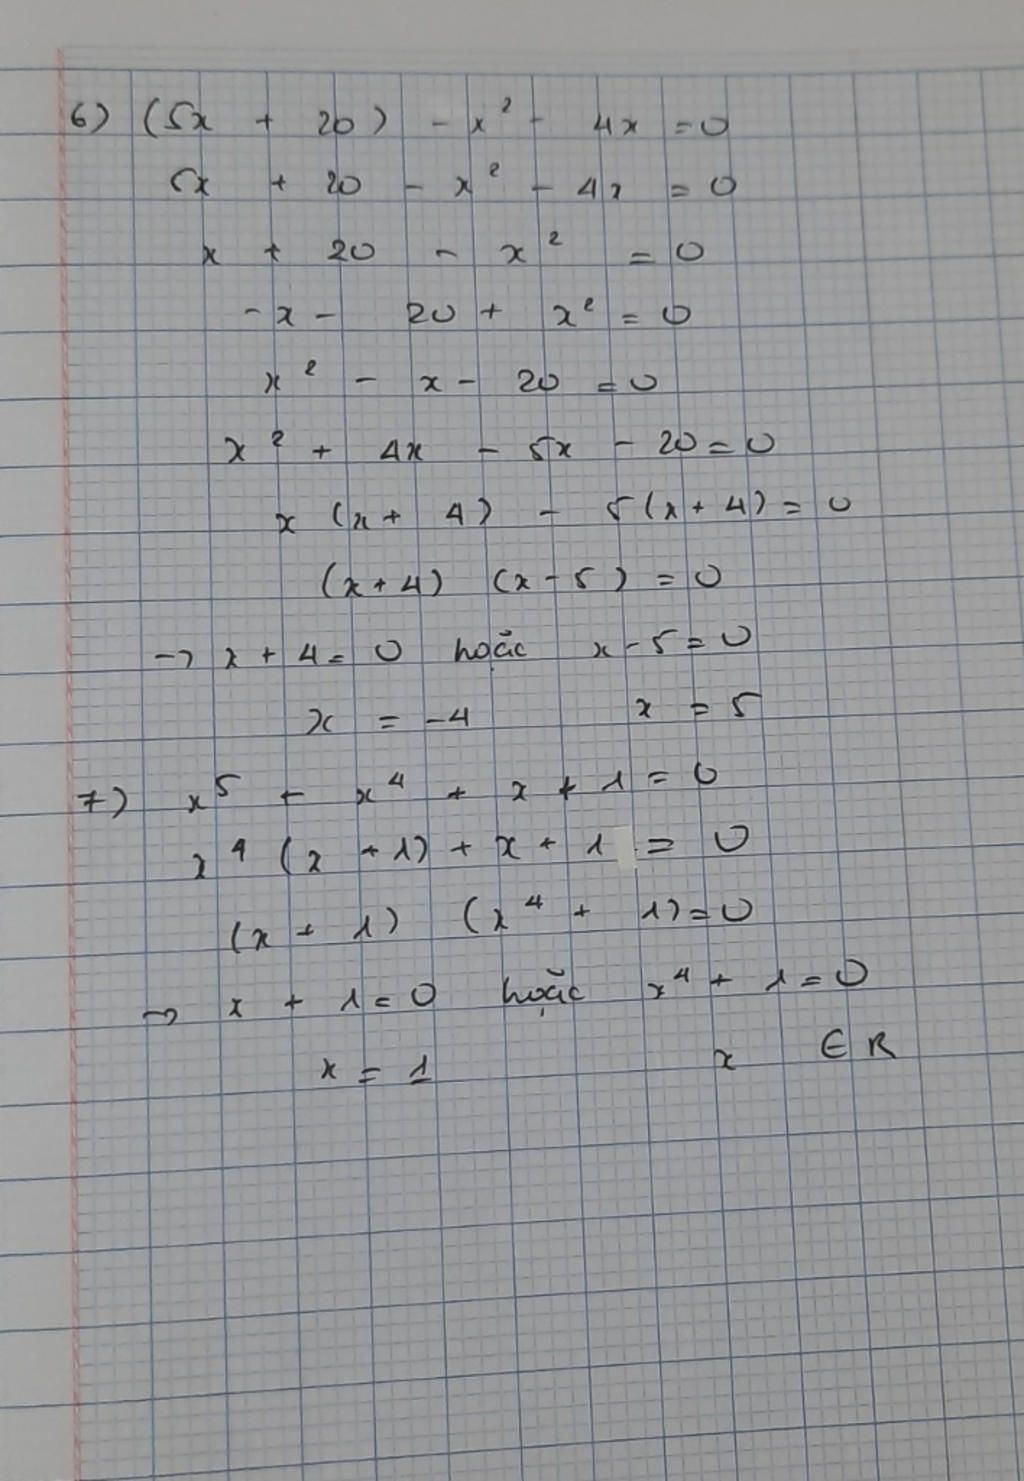 6) (5x + 20) - x² - 4x = 0
5x + 20 - x² - 4x = 0
x + 20 - x² = 0
-x - 20 + x² = 0
x² - x - 20 = 0
x² + 4x - 5x - 20 = 0
x (x + 4) - 5(x + 4) = 0
(x + 4) (x - 5) = 0
→ x + 4 = 0 hoặc x - 5 = 0
x = -4 x = 5
7) x⁵ + x⁴ + x + 1 = 0
x⁴ (x + 1) + x + 1 = 0
(x + 1) (x⁴ + 1) = 0
→ x + 1 = 0 hoặc x⁴ + 1 = 0
x = 1 x ∈ R